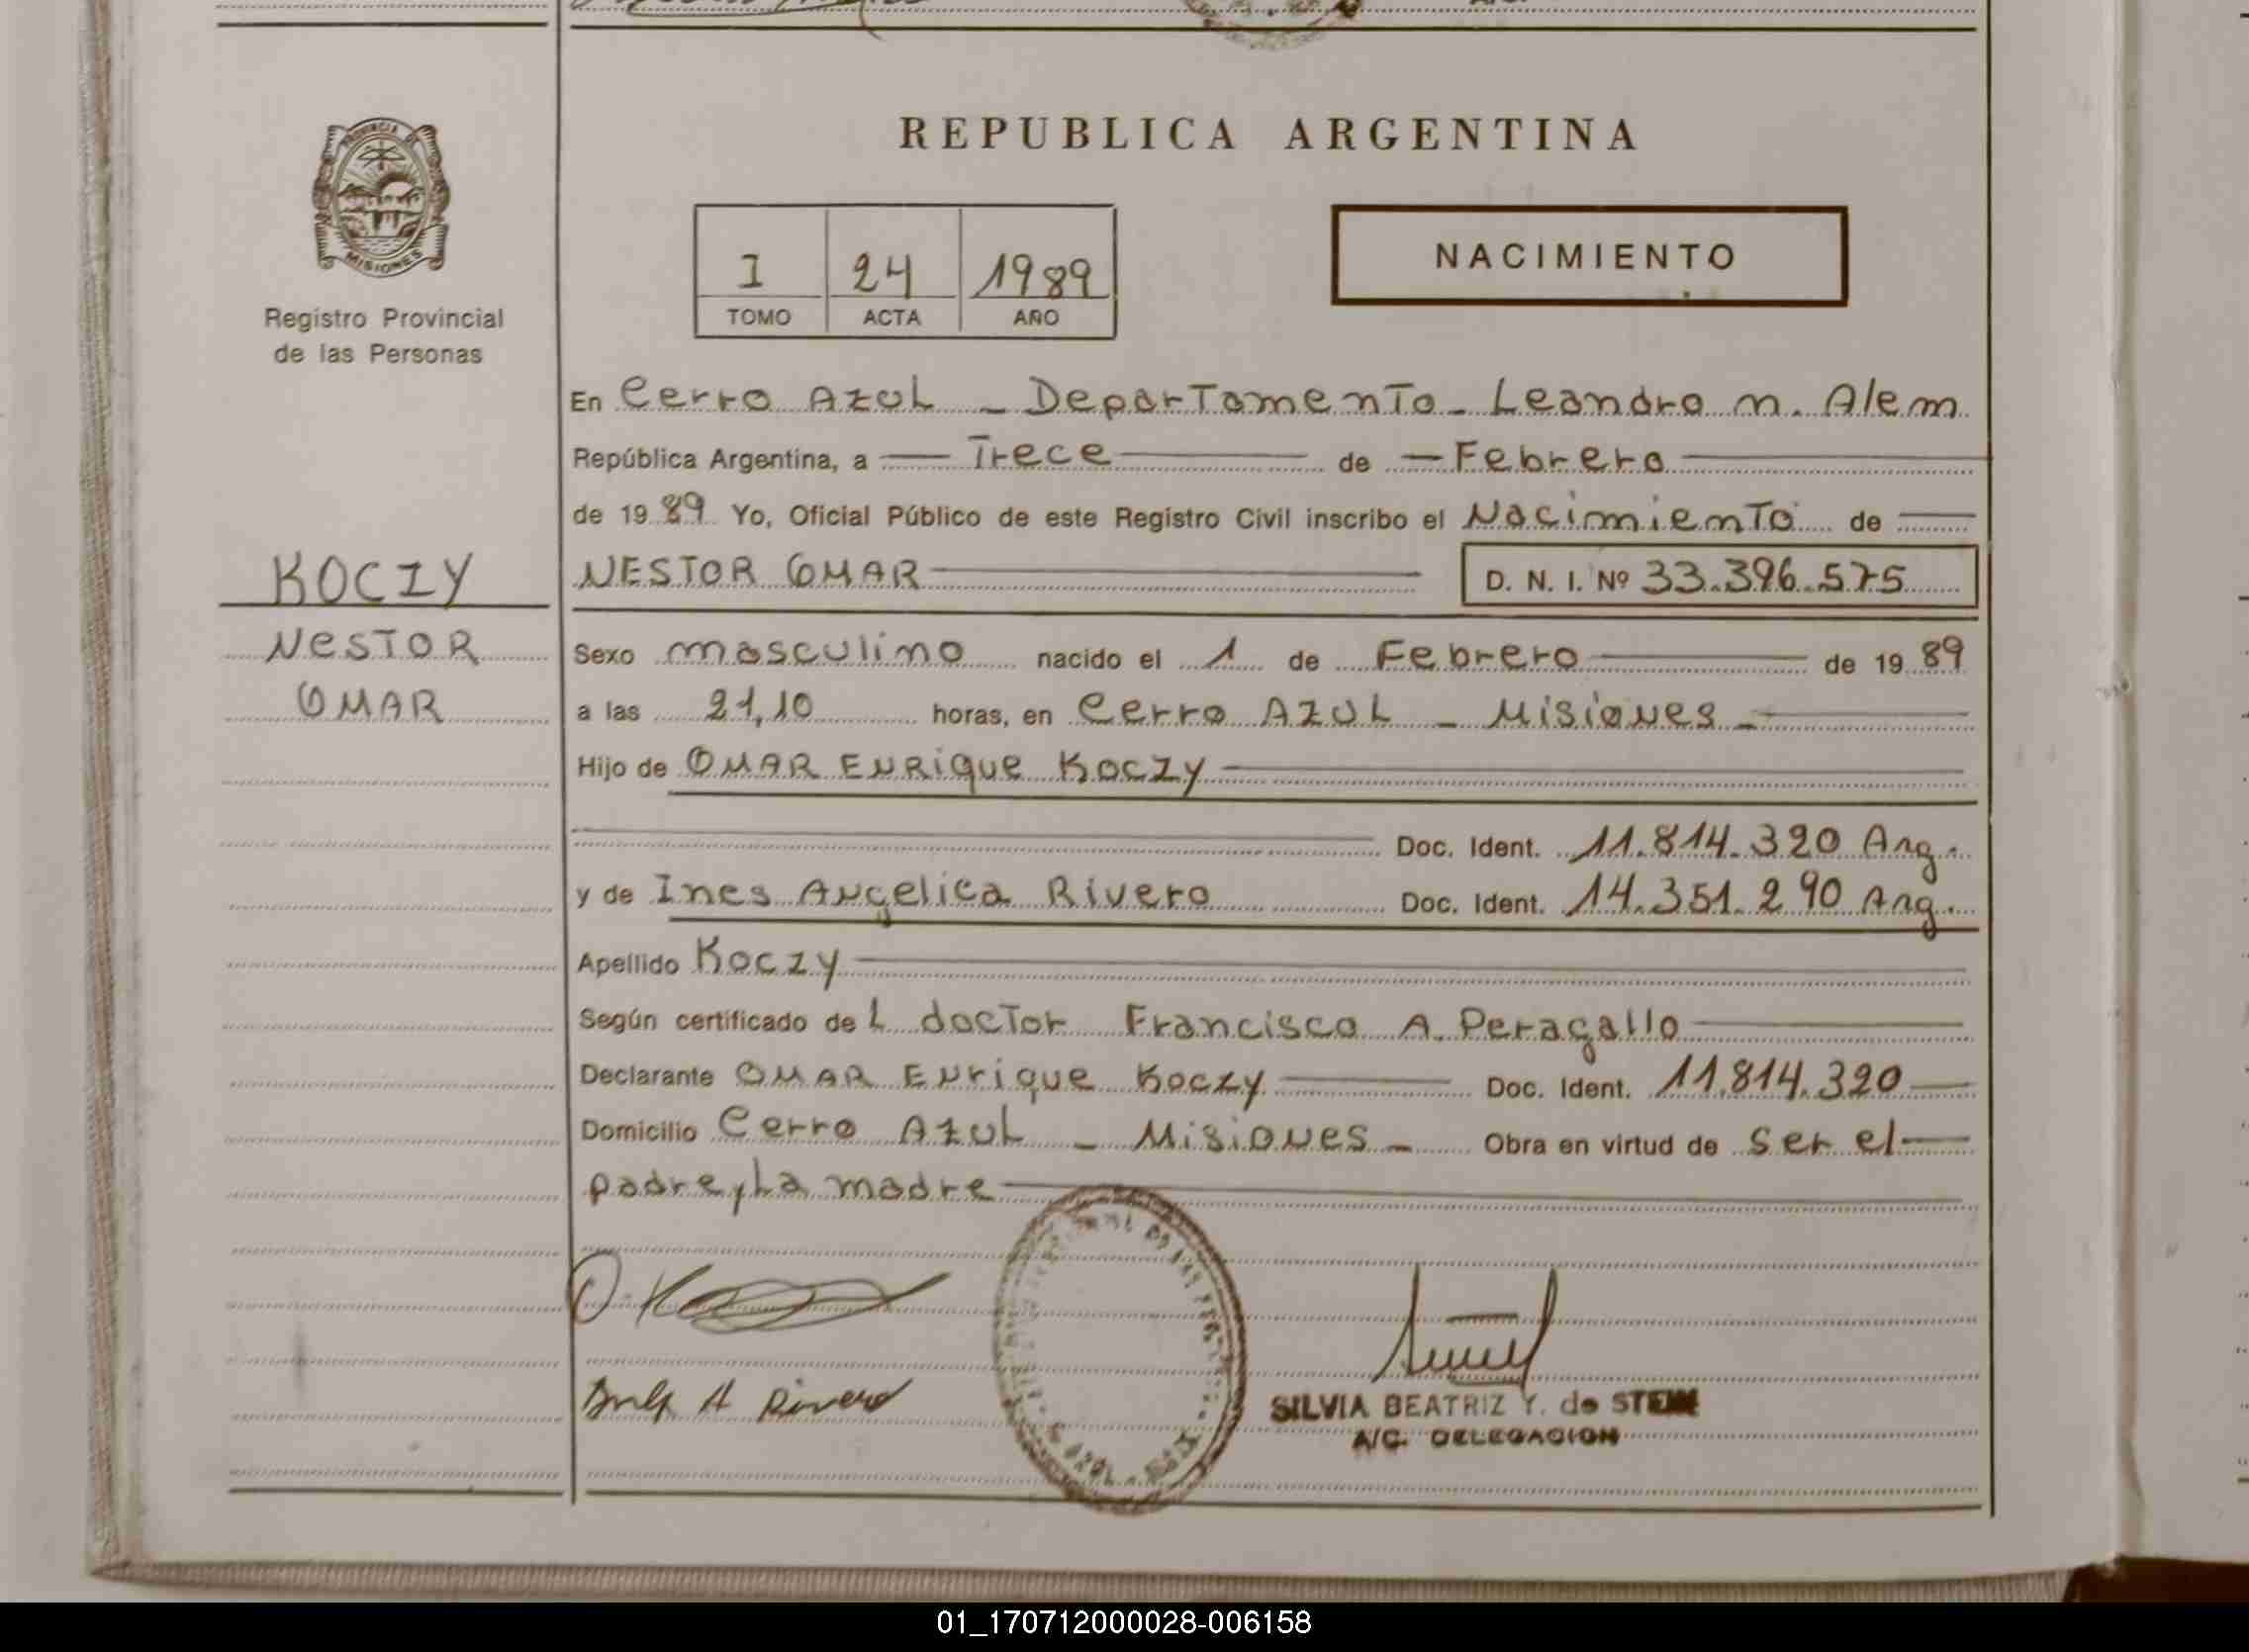 REPUBLICA ARGENTINA
PROVINCIA DE
MISIONES
Registro Provincial
de las Personas
I 24 1989
TOMO ACTA AÑO
NACIMIENTO
En Cerro Azul - Departamento - Leandro N. Alem
República Argentina, a Trece de Febrero
de 1989 Yo, Oficial Público de este Registro Civil inscribo el Nacimiento de
NESTOR OMAR D. N. I. Nº 33.396.575
KOCZY
NESTOR
OMAR
Sexo masculino nacido el 1 de Febrero de 1989
a las 21,10 horas, en Cerro Azul - Misiones -
Hijo de OMAR ENRique KOCZY
Doc. Ident. 11.814.320 Arg.
y de Ines Angelica Rivero Doc. Ident. 14.351.290 Arg.
Apellido Koczy
Según certificado del doctor Francisco A. Peragallo
Declarante OMAR Enrique Koczy Doc. Ident. 11.814.320
Domicilio Cerro Azul - Misiones - Obra en virtud de ser el
padre y La madre
A Rivero
SILVIA BEATRIZ Y. de STEIN
A/C. DELEGACION
01_170712000028-006158